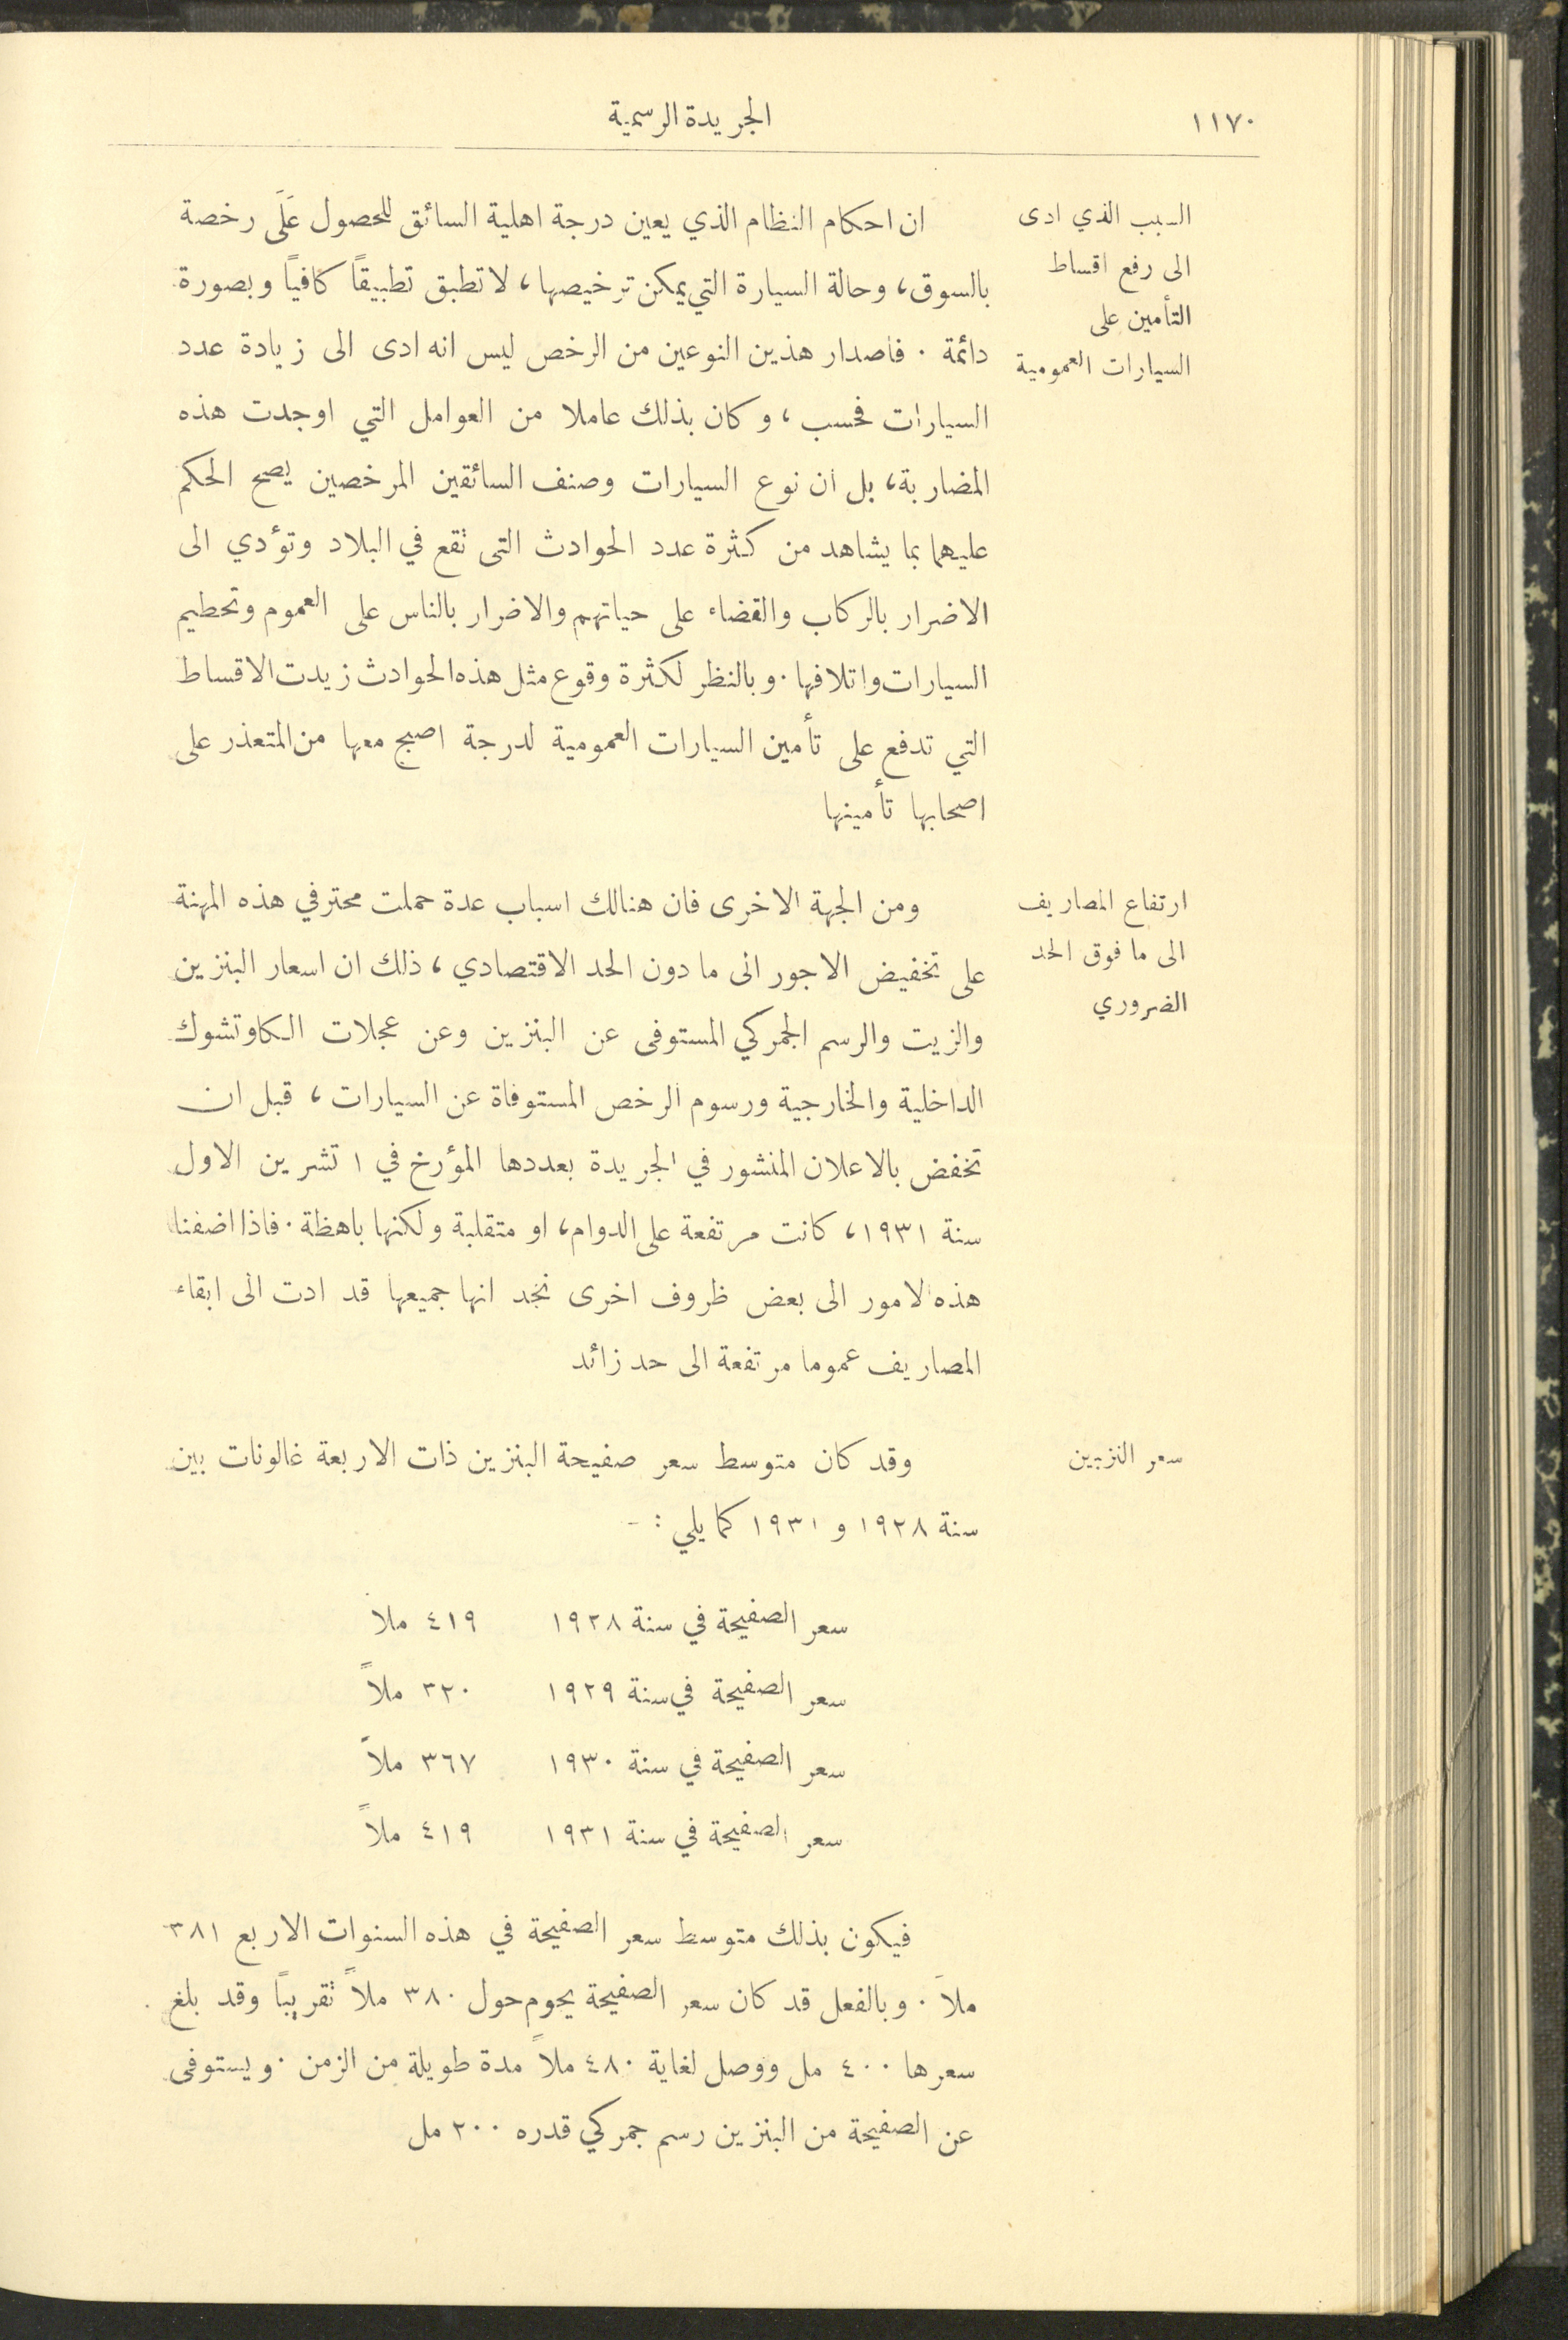 ١١٧٠
الجريدة الرسمية
السبب الذي ادى
الى رفع اقساط
التأمين على
السيارات العمومية
ان احكام النظام الذي يعين درجة اهلية السائق للحصول عَلَى رخصة
بالسوق، وحالة السيارة التي يمكن ترخيصها، لا تطبق تطبيقاً كافياً وبصورة
دائمة . فاصدار هذين النوعين من الرخص ليس انه ادى الى زيادة عدد
السيارات فحسب، وكان بذلك عاملا من العوامل التي اوجدت هذه
المضاربة، بل ان نوع السيارات وصنف السائقين المرخصين يصح الحكم
عليهما بما يشاهد من كثرة عدد الحوادث التي تقع في البلاد وتؤدي الى
الاضرار بالركاب والقضاء على حياتهم والاضرار بالناس على العموم وتحطيم
السيارات واتلافها . وبالنظر لكثرة وقوع مثل هذه الحوادث زيدت الاقساط
التي تدفع على تأمين السيارات العمومية لدرجة اصبح معها من المتعذر على
اصحابها تأمينها
ارتفاع المصاريف
الى ما فوق الحد
الضروري
ومن الجهة الاخرى فان هنالك اسباب عدة حملت محترفي هذه المهنة
على تخفيض الاجور الى ما دون الحد الاقتصادي، ذلك ان اسعار البنزين
والزيت والرسم الجمركي المستوفى عن البنزين وعن عجلات الكاوتشوك
الداخلية والخارجية ورسوم الرخص المستوفاة عن السيارات، قبل ان
تخفض بالاعلان المنشور في الجريدة بعددها المؤرخ في ١ تشرين الاول
سنة ١٩٣١، كانت مرتفعة على الدوام، او متقلبة ولكنها باهظة . فاذا اضفنا
هذه الامور الى بعض ظروف اخرى نجد انها جميعها قد ادت الى ابقاء
المصاريف عموما مرتفعة الى حد زائد
سعر النزبين
وقد كان متوسط سعر صفيحة البنزين ذات الاربعة غالونات بين
سنة ١٩٢٨ و ١٩٣١ كما يلي : -
سعر الصفيحة في سنة ١٩٢٨ ٤١٩ ملا
سعر الصفيحة في سنة ١٩٢٩ ٣٢٠ ملاً
سعر الصفيحة في سنة ١٩٣٠ ٣٦٧ ملاً
سعر الصفيحة في سنة ١٩٣١ ٤١٩ ملاً
فيكون بذلك متوسط سعر الصفيحة في هذه السنوات الاربع ٣٨١
ملاً . وبالفعل قد كان سعر الصفيحة يحوم حول ٣٨٠ ملاً تقريباً وقد بلغ
سعرها ٤٠٠ مل ووصل لغاية ٤٨٠ ملاً مدة طويلة من الزمن . ويستوفى
عن الصفيحة من البنزين رسم جمركي قدره ٢٠٠ مل